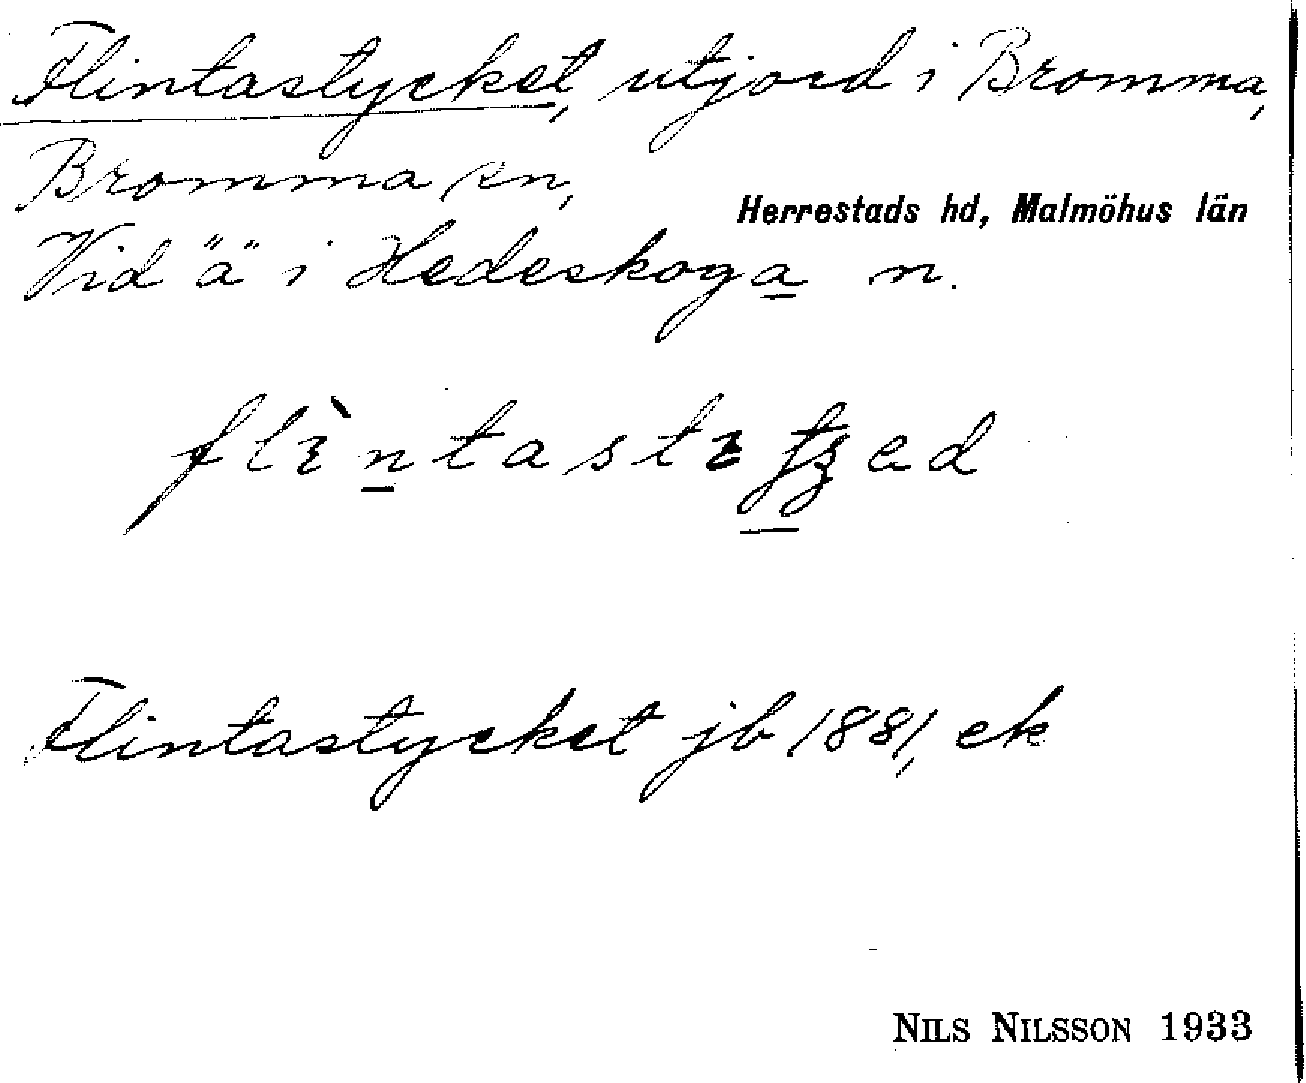 Flintastycket, utjord i Bromma,
Bromma sn,
Herrestads hd, Malmöhus län
Vid "a" i Hedeskoga n.
Flintastycket jb 1881, ek
NILS NILSSON 1933